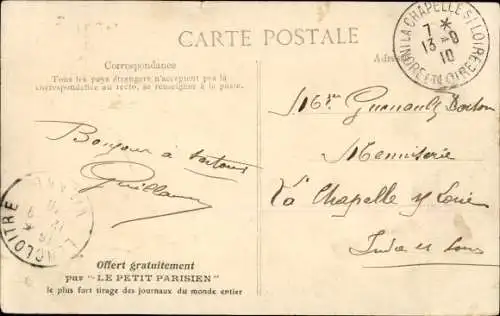 CARTE POSTALE
Correspondance
Tous les pays étrangers n'acceptent pas la
correspondance au recto, se renseigner à la poste.
LA CHAPELLE S/ LOIRE
7 *
13 - 9
10
INDRE-ET-LOIRE
Bonjour à
Guillaume
Menuiserie
La Chapelle s/ Loire
Indre et Loire
Offert gratuitement
par "LE PETIT PARISIEN"
le plus fort tirage des journaux du monde entier